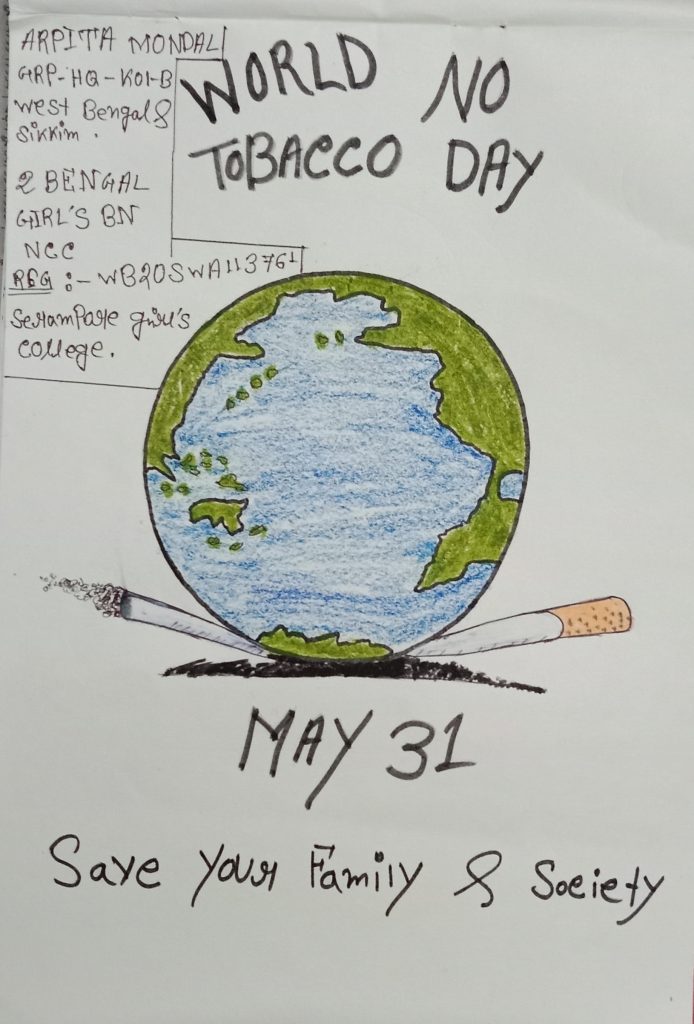 ARPITA MONDAL
GRP-HQ-KOL-B
West Bengal &
Sikkim.
2 BENGAL
GIRL'S BN
NCC
REG :- WB20SWA113761
Serampore girl's
college.
WORLD NO
TOBACCO DAY
MAY 31
Save Your Family & Society